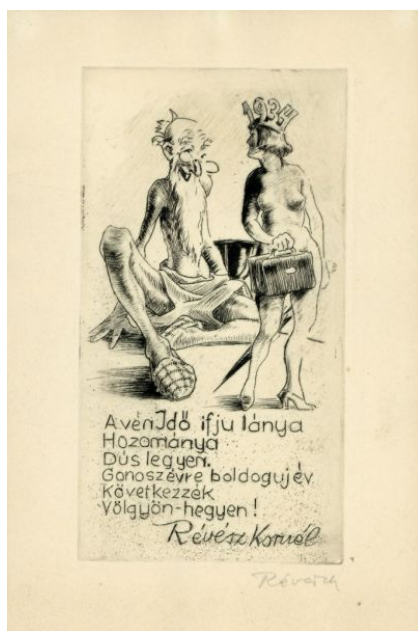 1935
A vén Idő ifju lánya
Hozománya
Dús legyen.
Gonosz évre boldog uj év
Következzék
Völgyön-hegyen!
Révész Kornél